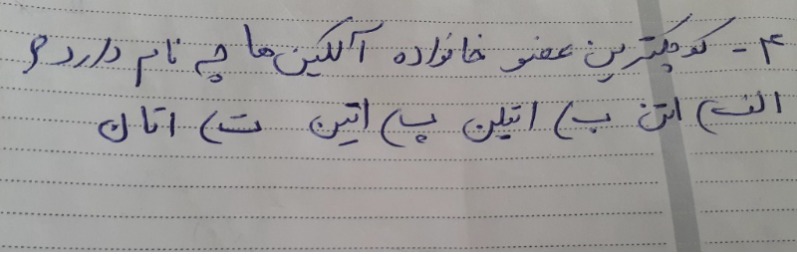 ۴- کوچکترین عضو خانواده آلکین ها چه نام دارد؟
الف) اتن ب) اتیلن پ) اتین ت) اتان